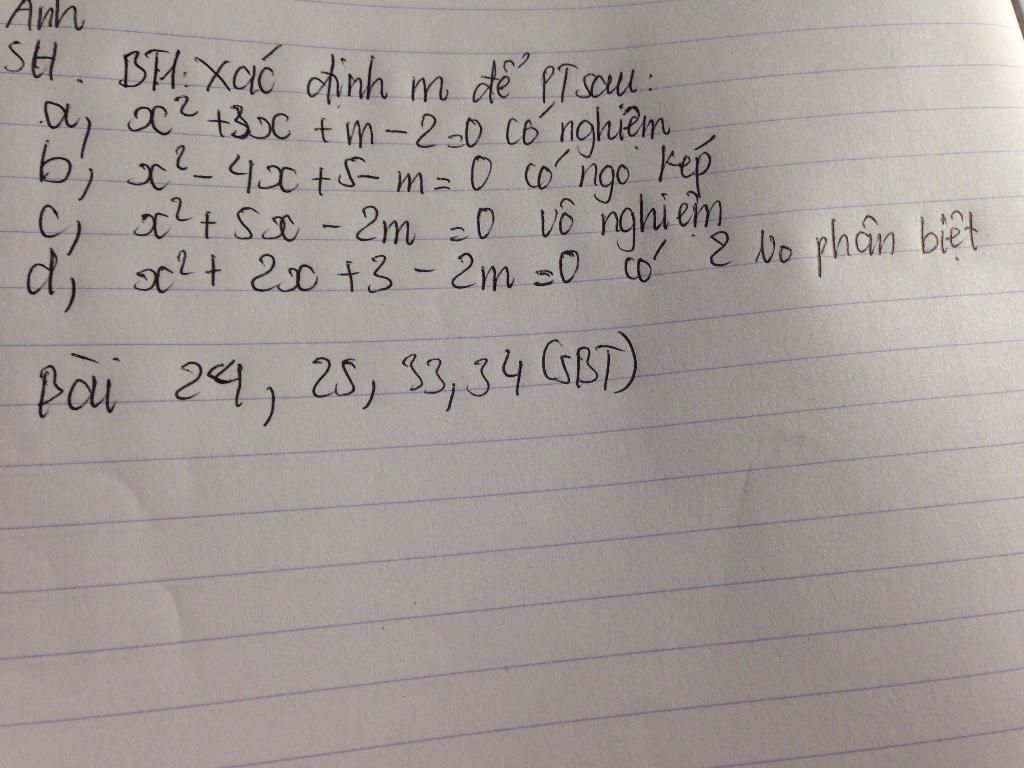 Anh
SH. BT1: Xác định m để PT sau:
a, x² + 3x + m - 2 = 0 có nghiệm
b, x² - 4x + 5 - m = 0 có ngo kép
c, x² + 5x - 2m = 0 vô nghiệm
d, x² + 2x + 3 - 2m = 0 có 2 no phân biệt
Bài 24, 25, 33, 34 (SBT)